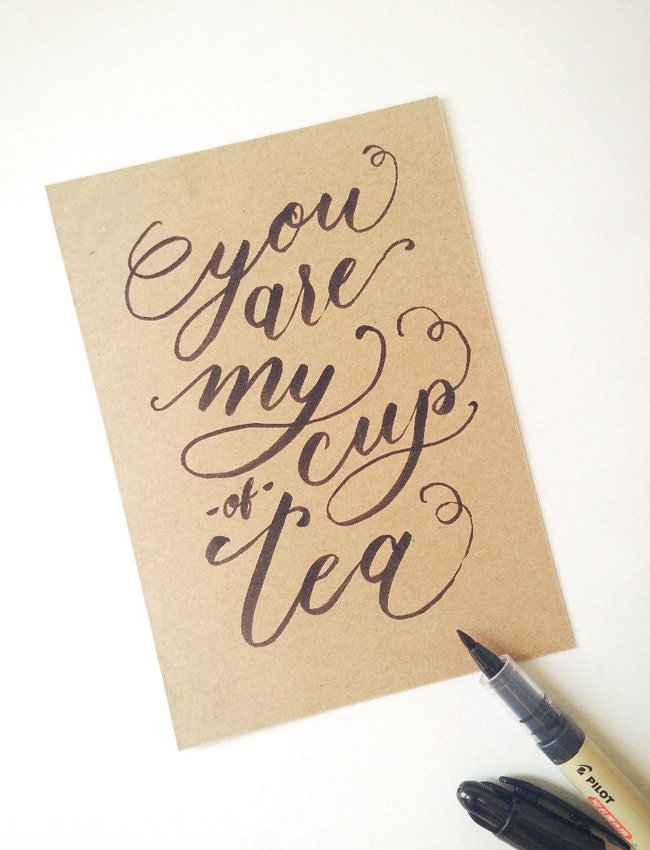 you
are
my
cup
-of-
tea
PILOT